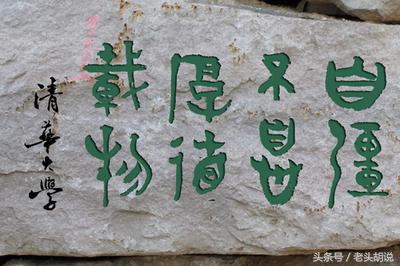 自彊
不息
厚德
載物
清華大學
头条号／老头胡说